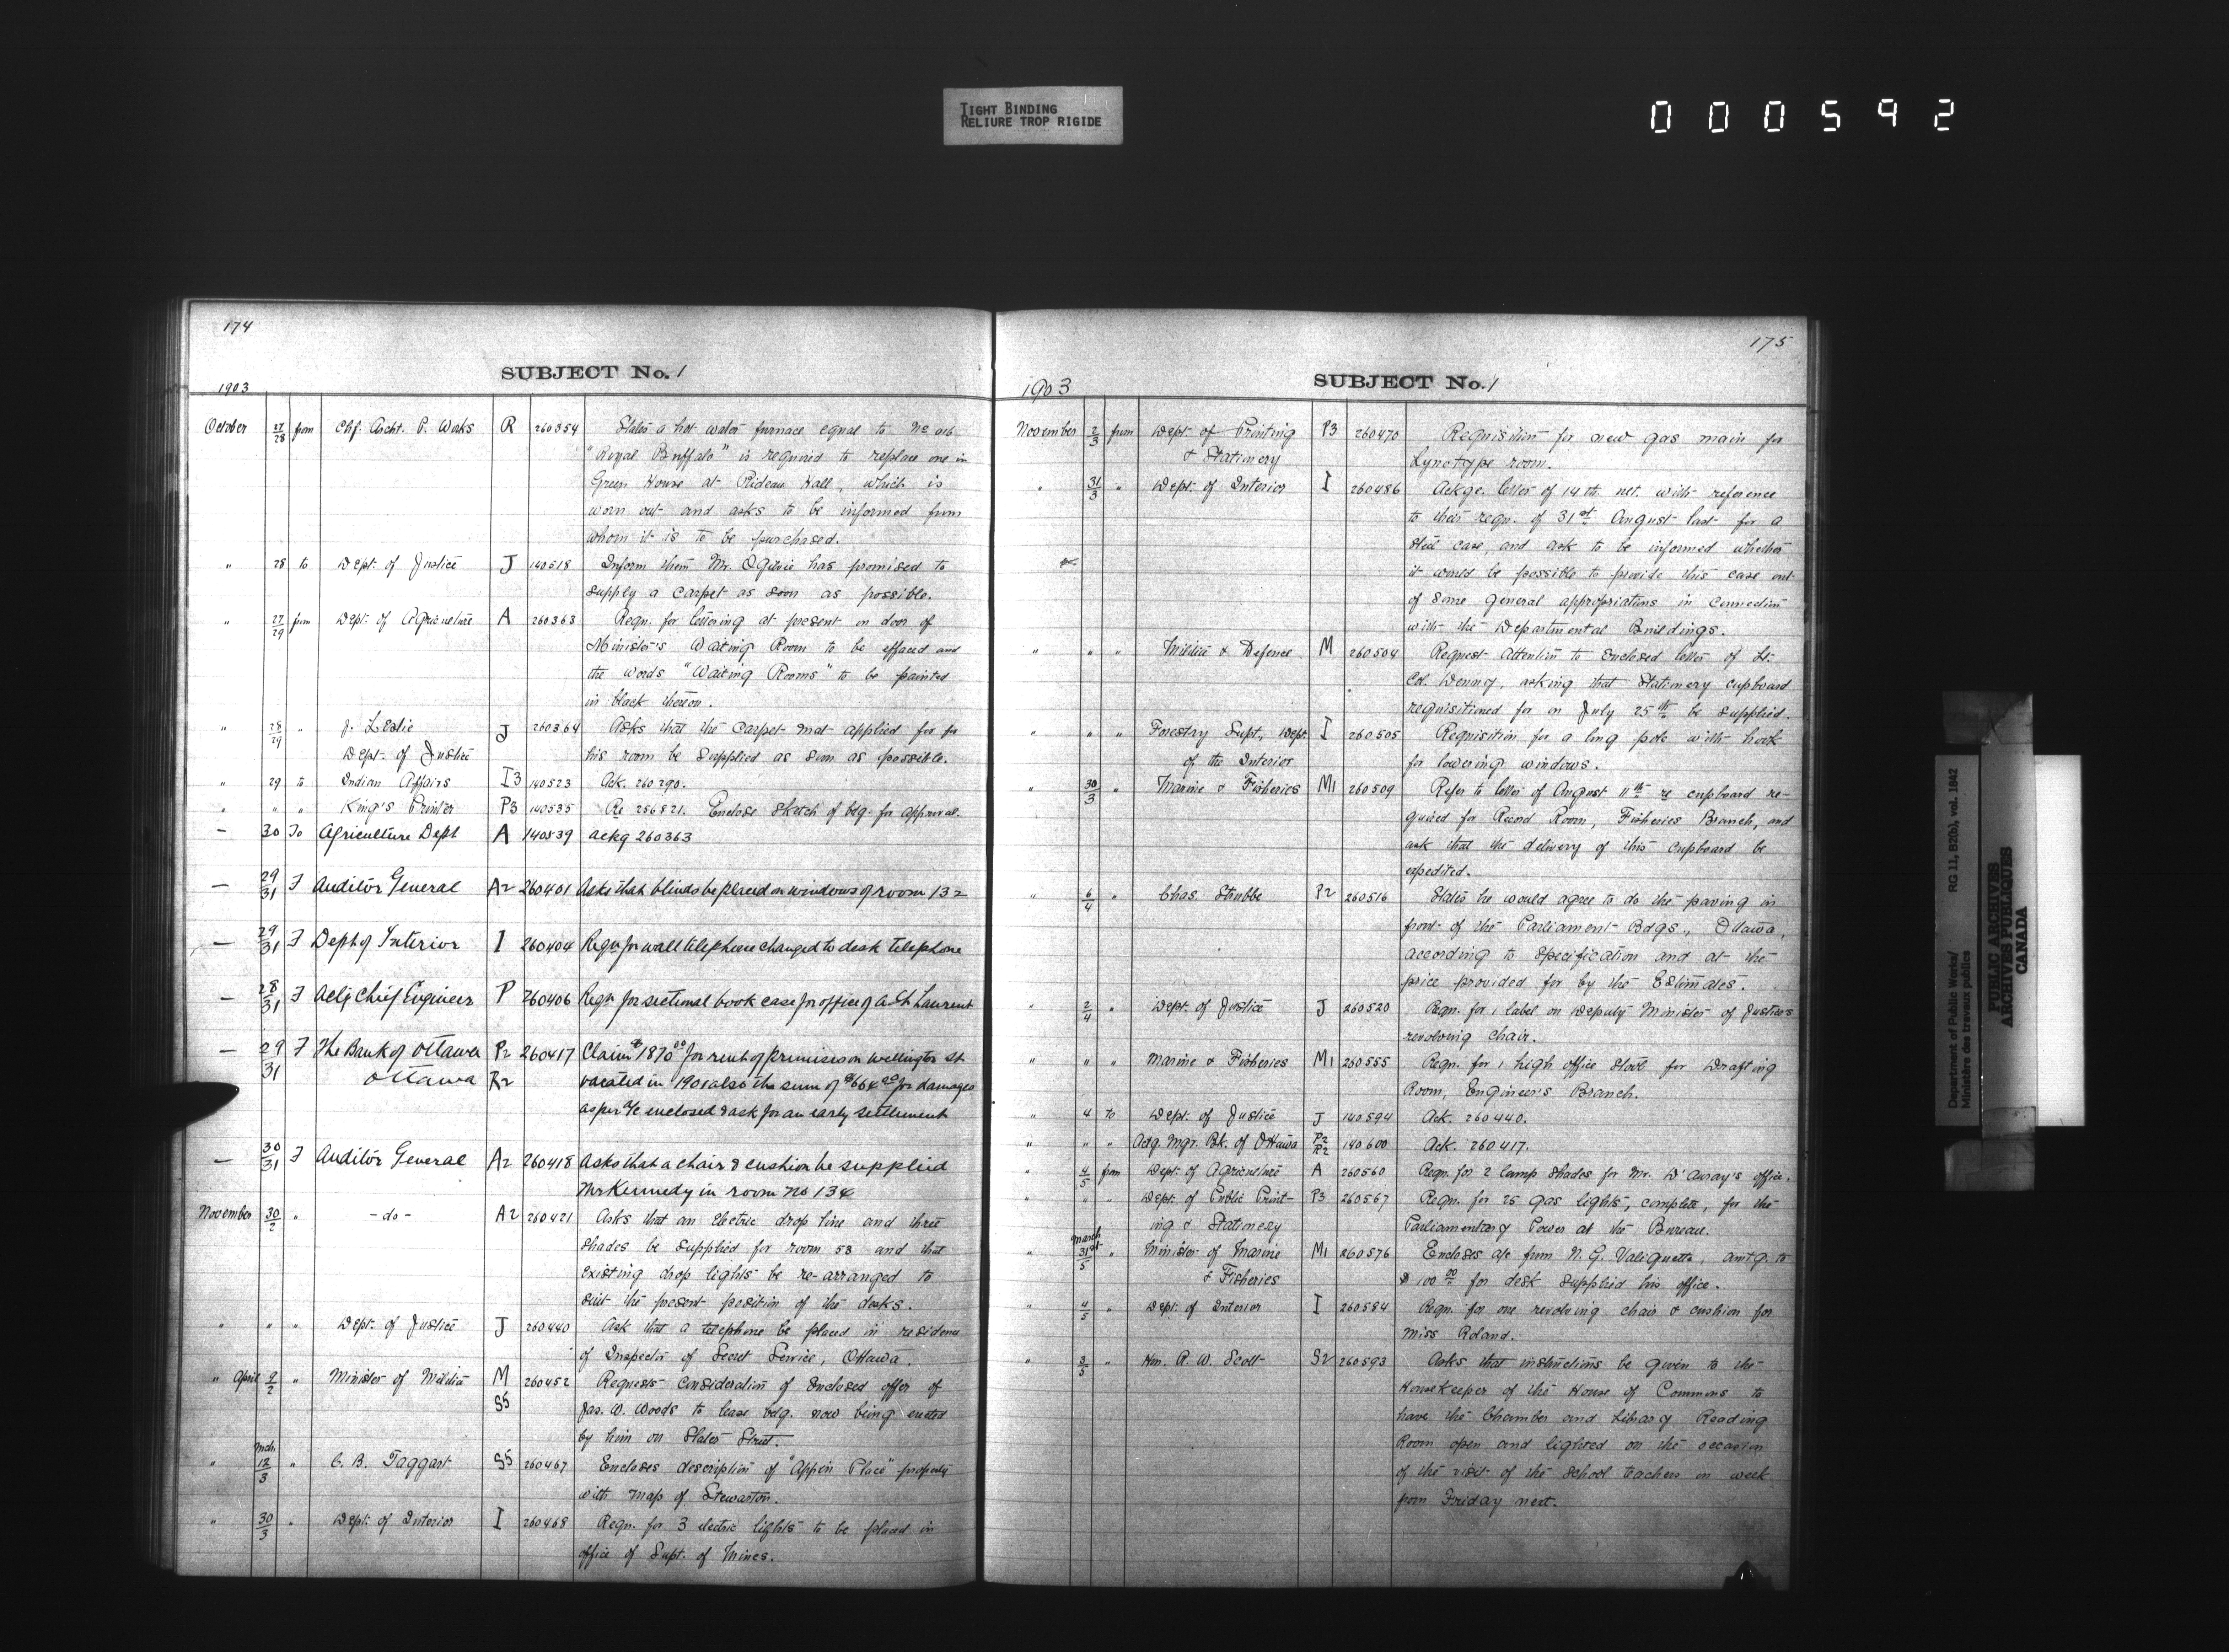 TIGHT BINDING
RELIURE TROP RIGIDE
000592
174
SUBJECT No. 1
1903
October 27/28 from Chf. Archt. P. Works R 260354 States a hot water furnace equal to No 016
"Royal Buffalo" is required to replace one in
Green House at Rideau Hall, which is
worn out and asks to be informed from
whom it is to be purchased.
" 28 to Dept. of Justice J 140518 Inform them Mr. Ogilvie has promised to
supply a carpet as soon as possible.
" 27/29 from Dept. of Agriculture A 260363 Reqn. for lettering at present on door of
Minister's Waiting Room to be effaced and
the words "Waiting Rooms" to be painted
in black thereon.
" 28/29 " J. Leslie J 260364 Asks that the carpet mat applied for for
Dept. of Justice his room be supplied as soon as possible.
" 29 to Indian Affairs I3 140523 Ack. 260290.
" " " King's Printer P3 140535 Re 256821. Enclose sketch of bdg. for approval.
— 30 To Agriculture Dept A 140539 ackg 260363
— 29/31 F Auditor General A2 260401 Asks that blinds be placed on windows of room 132
— 29/31 F Dept of Interior I 260404 Reqn for wall telephone changed to desk telephone
— 28/31 F Actg Chief Engineer P 260406 Reqn for sectional book case for office of A. St Laurent
— 29/31 F The Bank of Ottawa P2 260417 Claim $1870.00 for rent of premises on Wellington St
Ottawa R2 vacated in 1901 also the sum of $664.20 for damages
as per a/c enclosed & ask for an early settlement
— 30/31 F Auditor General A2 260418 Asks that a chair & cushion be supplied
Mr Kennedy in room No 134
November 30/2 " -do- A2 260421 Asks that an Electric drop line and three
shades be supplied for room 53 and that
existing drop lights be re-arranged to
suit the present position of the desks.
" " " Dept. of Justice J 260440 Ask that a telephone be placed in residence
of Inspector of Secret Service, Ottawa.
" April 9/2 " Minister of Militia M 260452 Requests consideration of enclosed offer of
S5 Jas. W. Woods to lease bdg. now being erected
by him on Slater Street.
Mch.
" 12/3 " C. B. Taggart S5 260467 Encloses description of "Appin Place" property
with map of Stewarton.
" 30/3 " Dept. of Interior I 260468 Reqn. for 3 electric lights to be placed in
office of Supt. of Mines.
175
SUBJECT No. 1
1903
November 2/3 from Dept. of Printing P3 260470 Requisition for new gas main for
& Stationery Lynotype room.
" 31/3 " Dept. of Interior I 260486 Ackge. letter of 14th. ult. with reference
to their reqn. of 31st August last for a
steel case, and ask to be informed whether
it would be possible to provide this case out
of some general appropriations in connection
with the Departmental Buildings.
" " " Militia & Defence M 260504 Request attention to enclosed letter of Lt.
Col. Denny, asking that Stationery cupboard
requisitioned for on July 25th be supplied.
" " " Forestry Supt., Dept. I 260505 Requisition for a long pole with hook
of the Interior for lowering windows.
" 30/3 " Marine & Fisheries M1 260509 Refer to letter of August 11th re cupboard re-
quired for Record Room, Fisheries Branch, and
ask that the delivery of this cupboard be
expedited.
" 6/4 " Chas. Strubbe P2 260516 States he would agree to do the paving in
front of the Parliament Bdgs., Ottawa,
according to specification and at the
price provided for by the Estimates.
" 2/4 " Dept. of Justice J 260520 Reqn. for 1 label on Deputy Minister of Justice's
revolving chair.
" " " Marine & Fisheries M1 260555 Reqn. for 1 high office stool for Drafting
Room, Engineer's Branch.
" 4 to Dept. of Justice J 140594 Ack. 260440.
" " " Actg. Mgr. Bk. of Ottawa P2 R2 140600 Ack. 260417.
" 4/5 from Dept. of Agriculture A 260560 Reqn. for 2 lamp shades for Mr. D'Auray's office.
" " " Dept. of Public Print- P3 260567 Reqn. for 25 gas lights, complete, for the
ing & Stationery Parliamentary Power at the Bureau.
March
" 31st/5 " Minister of Marine M1 260576 Encloses a/c from N. G. Valiquette, amtg. to
& Fisheries $100.00 for desk supplied his office.
" 4/5 " Dept. of Interior I 260584 Reqn. for one revolving chair & cushion for
Miss Roland.
" 3/5 " Hon. R. W. Scott S2 260593 Asks that instructions be given to the
Housekeeper of the House of Commons to
have the Chamber and Library Reading
Room open and lighted on the occasion
of the visit of the school teachers on week
from Friday next.
Department of Public Works/ RG 11, B2(b), vol. 1842
Ministère des travaux publics
PUBLIC ARCHIVES
ARCHIVES PUBLIQUES
CANADA